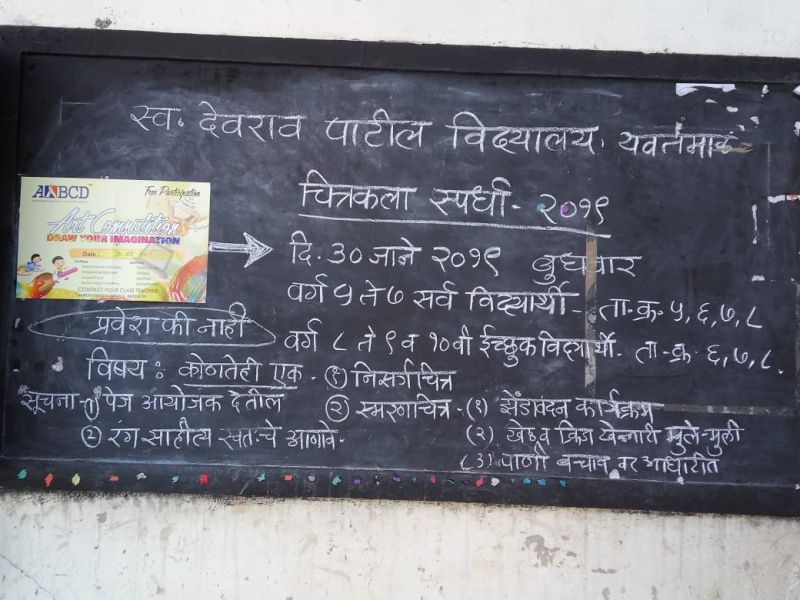 स्व. देवराव पाटील विद्यालय, यवतमाळ
चित्रकला स्पर्धा - २०१९
ANBCD
Free Participation
Art Competition
DRAW YOUR IMAGINATION
Date :
CONTACT YOUR CLASS TEACHER
दि. ३० जाने २०१९ बुधवार
वर्ग १ ते ७ सर्व विद्यार्थी - ता.क्र. ५, ६, ७, ८
प्रवेश फी नाही
वर्ग ८ ते ९ व १० वी ईच्छुक विद्यार्थी - ता.क्र ६, ७, ८.
विषय : कोणतेही एक - (१) निसर्गचित्र
सूचना - (१) पेज आयोजक देतील (२) स्मरणचित्र - (१) झेंडावंदन कार्यक्रम
(२) रंग साहित्य स्वतःचे आणावे - (२) खेळ व क्रिडा खेळणारी मुले-मुली
(३) पाणी बचाव वर आधारीत